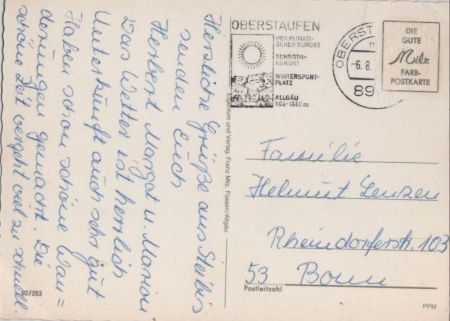 Herzliche Grüße aus Steibis
senden Euch
Herbert Margot u. Marion
Das Wetter ist herrlich
Unterkunft auch sehr gut
Haben schon schöne Wan=
derungen gemacht. Die
schöne Zeit vergeht viel zu schnell.
92/253
Eigentum und Verlag, Franz Milz, Füssen/Allgäu
OBERSTAUFEN
HEILKLIMATI-
SCHER KURORT
SCHROTH-
KURORT
WINTERSPORT-
PLATZ
ALLGÄU
-6.8.
89
DIE
GUTE
Milz
FARB-
POSTKARTE
Familie
Helmut Lenzen
Rheindorferstr. 103
53 Bonn
Postleitzahl
PPM